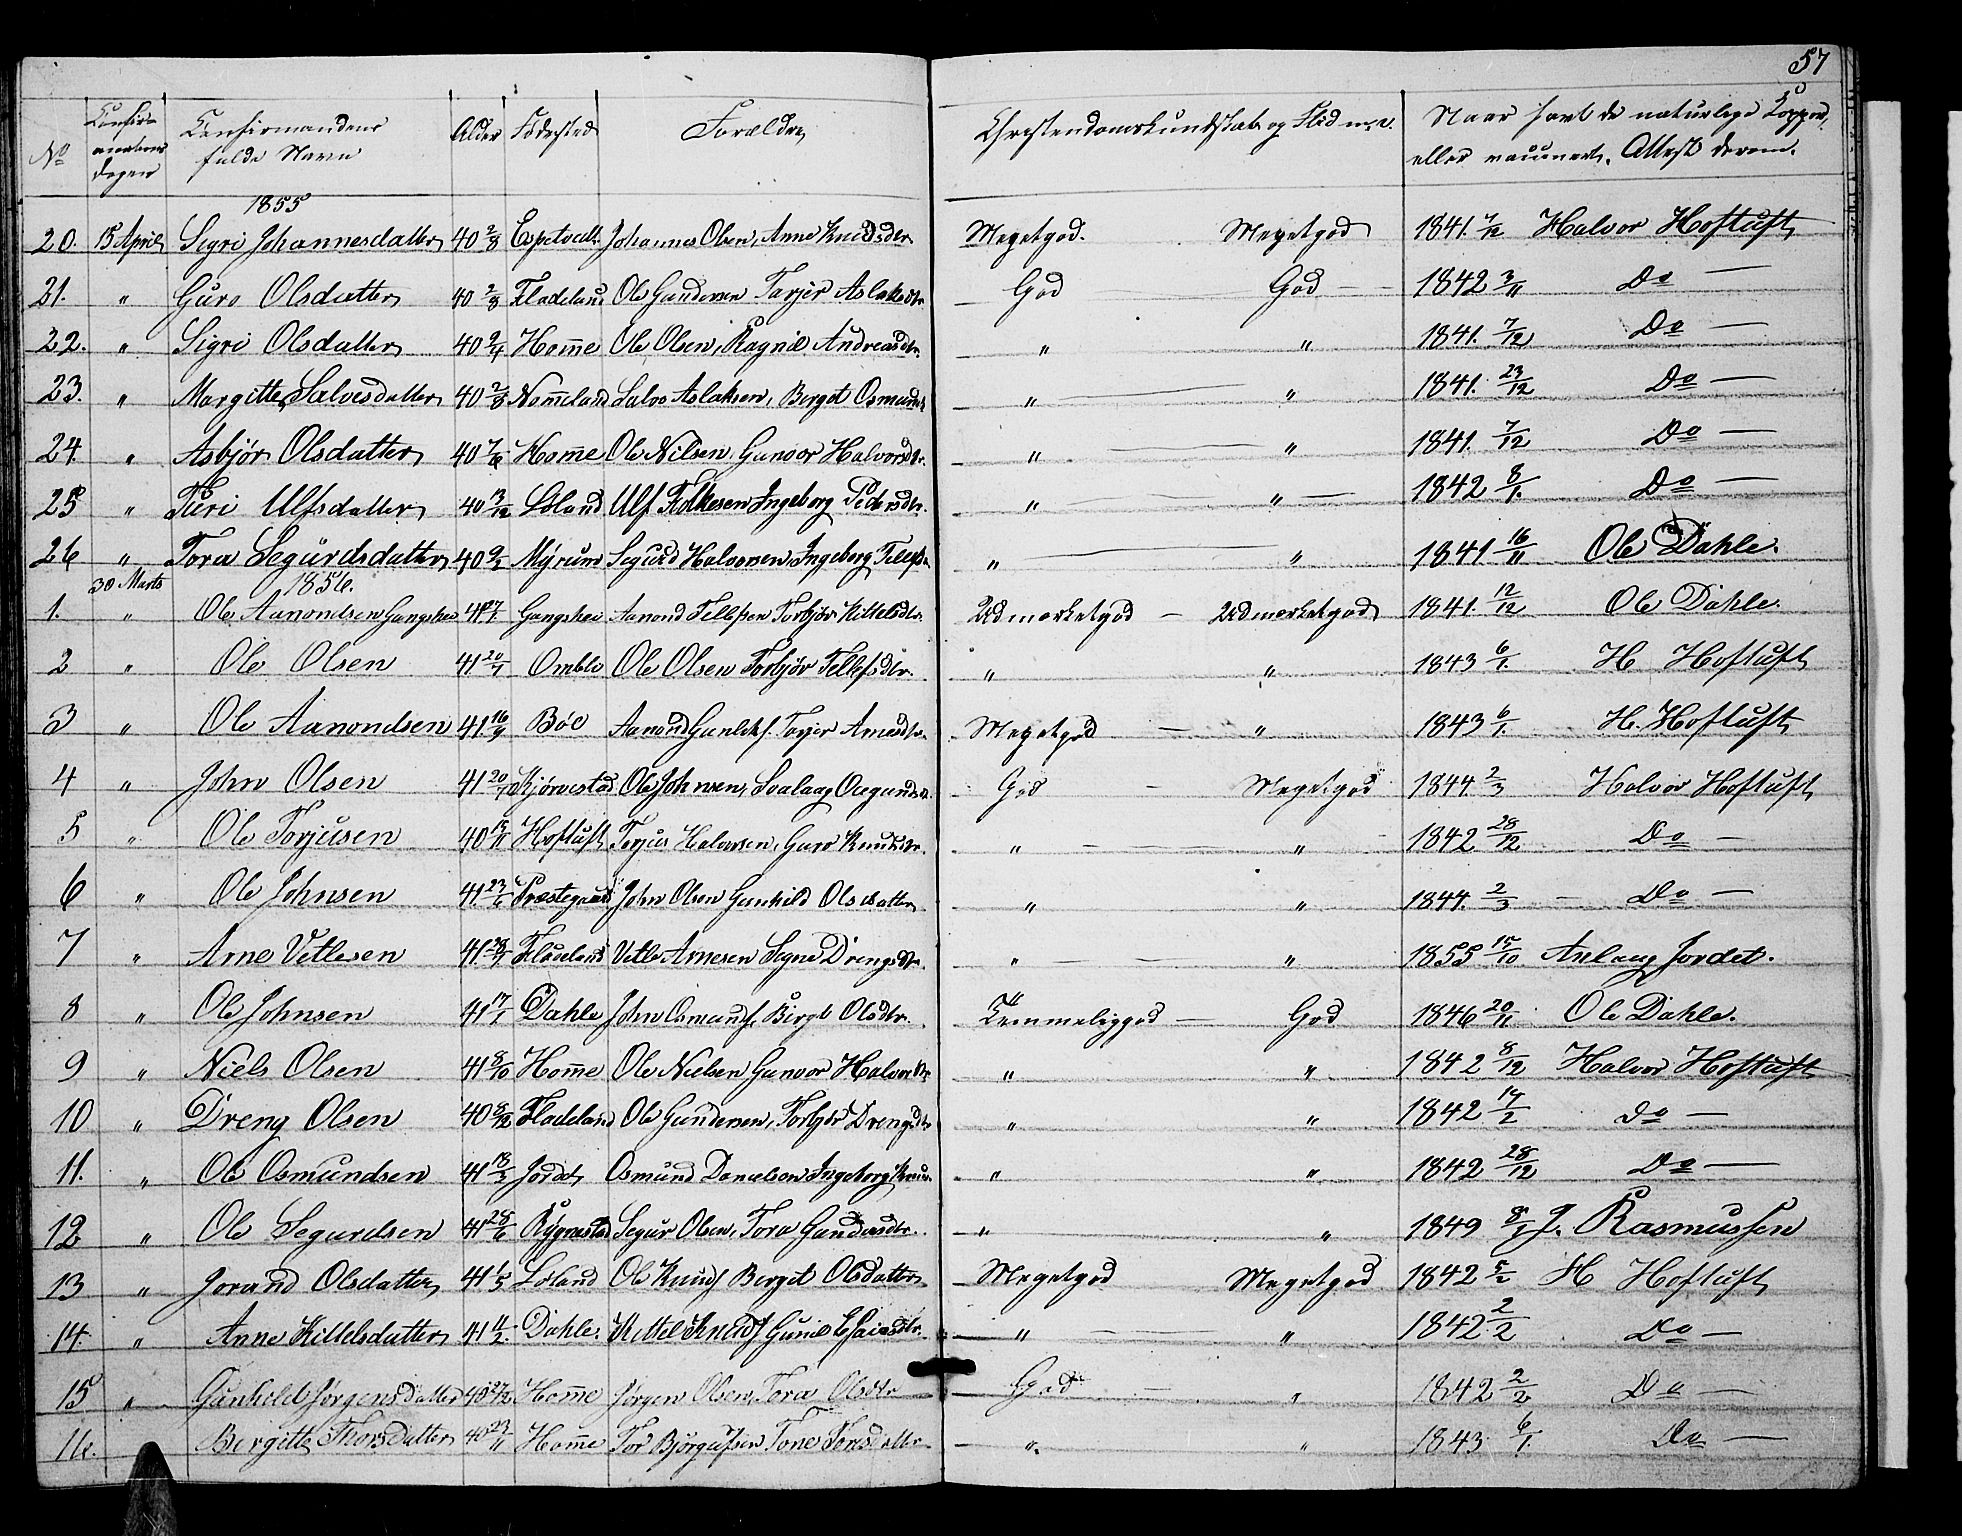 57
No Confirmations Dagen Confirmandens fulde Navn Alder Fødested Forældre Christendomskundskab og Flid m. v. Naar havt de naturlige Kopper, eller vaccineret. Attest derom.
1855
20. 15 April Sigri Johannesdatter 40 2/8 Espetvedt Johannes Olsen, Anne Knudsdtr Megetgod. Megetgod 1841. 7/12 Halvor Hoftuft
21. " Guro Olsdatter 40 2/8 Fladeland Ole Gundersen Torjer Aslaksdtr God God 1842 3/11 Do
22. " Sigri Olsdatter 40 Homme Ole Olsen, Ragnil Andreasdtr. " " 1841. 7/12 Do
23. " Margitte Salvesdatter 40 2/8 Nomeland Salve Aslaksen, Berget Osmunds " " 1841. 23/12 Do
24. " Asbjør Olsdatter 40 7/6 Homme Ole Nilsen, Gunvor Halvorsdtr. " " 1841. 7/12 Do
25 " Turi Ulfsdatter 40 13/12 Løland Ulf Folkesen Ingeborg Pedersdtr. " " 1842 8/1. Do
26 " Tora Segurdsdatter 40 9/2 Myrum Segurd Halvorsen, Ingeborg Tellefs " " 1841 16/11 Ole Dahle.
30 Marts 1856.
1. " Ole Aanondsen Gangshei 41 Gangshei Aanond Tellefsen Torbjør Kittelsdtr. Udmærketgod Udmærketgod 1841. 12/12 Ole Dahle.
2 " Ole Olsen 41 20/7 Omlid Ole Olsen Torbjør Tellefsdtr. " " 1843 6/1. H Hoftuft
3 " Ole Aanondsen 41 16/9 Bøe Aanond Gunleks. Torjer Arnesdtr. Megetgod " 1843 6/1. H. Hoftuft
4 " John Olsen 41 20/7 Kjørvestad Ole Johnsen, Svalaug God Megetgod 1844. 2/3 Halvor Hoftuft
5 " Ole Torjusen 40 Hoftuft Torjus Halvorsen, Guro Knudsdtr. " " 1842 28/12 Do
6 " Ole Johnsen 41 23/6 Præstegaard John Olsen Gunhild Olsdatter " " 1844. 2/3 Do
7 " Arne Vetlesen 41 Fladeland Vetle Arnesen Segne Drengsdtr. " " 1855 15/10 Anlaug Jordet.
8 " Ole Johnsen 41 17/1 Dahle John Osmunds. Birgit Olsdtr. Temmeliggod God 1846 20/11 Ole Dahle.
9 " Niels Olsen 41 8/10 Homme Ole Nielsen Gunvor Halvorsdtr " " 1842 8/12 Halvor Hoftuft
10 " Dreng Olsen 40 8/12 Fladeland Ole Gundersen, Torbjør Drengsdtr " " 1842 17/2 do
11. " Ole Osmundsen 41 18/3 Jordet Osmund Danielsen Ingeborg Knuds. " " 1842 28/12 Do
12 " Ole Segurdsen 41 28/6 Rygnestad Segur Olsen, Tora Gundersdtr. " " 1849 8/1 J. Rasmussen
13 " Jorand Olsdatter 41 1/5 Løland Ole Knuds Berget Olsdatter Megetgod Megetgod 1842 5/2 H Hoftuft
14. " Anne Kittelsdatter 41 11/2. Dahle. Kittel Knuds Gunil Esaiasdtr. " " 1842 2/2 Do
15 " Gunhild Jørgensdatter 40 27/12. Homme Jørgen Olsen, Tora Olsdtr God " 1842 2/2 Do
16. Birgitte Thorsdatter 40 23/11 Homme Tor Bjørgufsen Tone Torsdatter " " 1843 6/1. Do